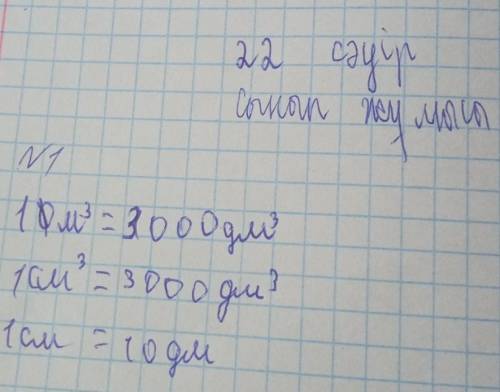 22 сәуір
сынып жұмысы
№1
10м³ = 3000дм³
1см³ = 3000дм³
1см = 10дм